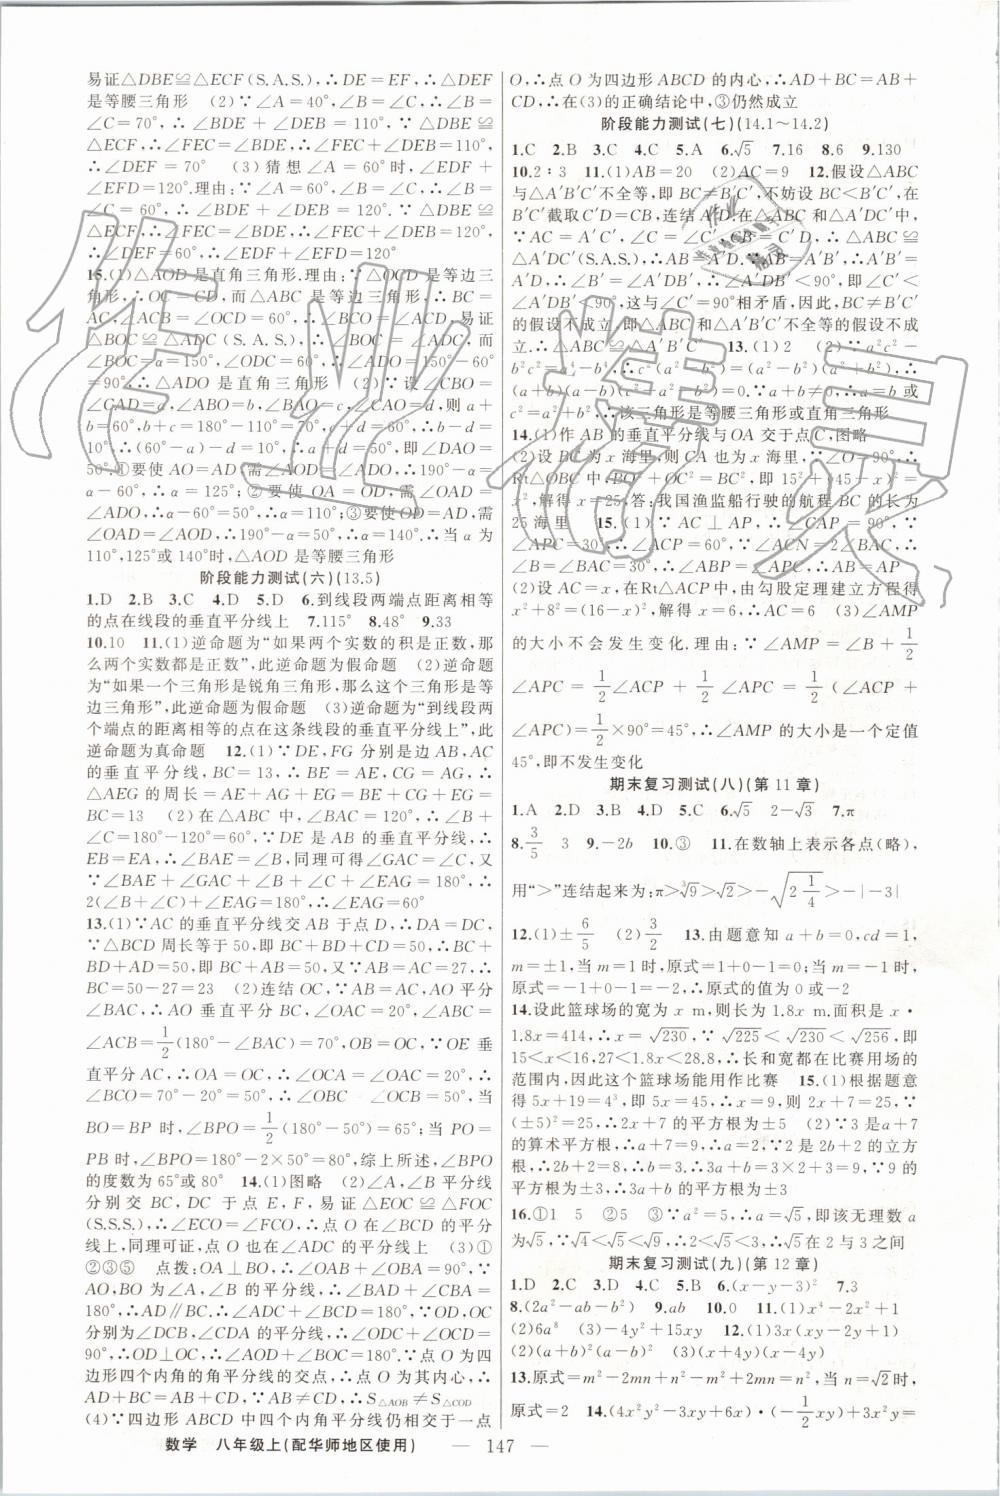 易证△DBE≌△ECF(S.A.S.),∴DE=EF,∴△DEF
是等腰三角形　(2)∵∠A=40°,∠B=∠C,∴∠B=
∠C=70°,∴∠BDE+∠DEB=110°,∵△DBE≌
△ECF,∴∠FEC=∠BDE,∴∠FEC+∠DEB=110°,
∴∠DEF=70°　(3)猜想∠A=60°时,∠EDF+
∠EFD=120°.理由:∵∠B=∠C,∠A=60°,∴∠B=
∠C=60°,∴∠BDE+∠DEB=120°.∵△DBE≌
△ECF,∴∠FEC=∠BDE,∴∠FEC+∠DEB=120°,
∴∠DEF=60°,∴∠EDF+∠EFD=120°
15.(1)△AOD是直角三角形.理由:∵△OCD是等边三
角形,∴OC=CD,而△ABC是等边三角形,∴BC=
AC,∠ACB=∠OCD=60°,∴∠BCO=∠ACD,易证
△BOC≌△ADC(S.A.S.),∴∠BOC=∠ADC,而
∠BOC=α=150°,∠ODC=60°,∴∠ADO=150°-60°
=90°,∴△ADO是直角三角形　(2)∵设∠CBO=
∠CAD=a,∠ABO=b,∠BAO=c,∠CAO=d,则a+
b=60°,b+c=180°-110°=70°,c+d=60°,∴b-d=
10°,∴(60°-a)-d=10°,∴a+d=50°,即∠DAO=
50°,①要使AO=AD,需∠AOD=∠ADO,∴190°-α
=α-60°,∴α=125°;②要使OA=OD,需∠OAD=
∠ADO,∴α-60°=50°,∴α=110°;③要使OD=AD,需
∠OAD=∠AOD,∴190°-α=50°,∴α=140°.∴当α为
110°,125°或140°时,△AOD是等腰三角形
阶段能力测试(六)(13.5)
1.D　2.B　3.C　4.D　5.D　6.到线段两端点距离相等
的点在线段的垂直平分线上　7.115°　8.48°　9.33
10.10　11.(1)逆命题为“如果两个实数的积是正数,那
么两个实数都是正数”,此逆命题为假命题　(2)逆命题
为“如果一个三角形是锐角三角形,那么这个三角形是等
边三角形”,此逆命题为假命题　(3)逆命题为“到线段两
个端点的距离相等的点在这条线段的垂直平分线上”,此
逆命题为真命题　12.(1)∵DE,FG分别是边AB,AC
的垂直平分线,BC=13,∴AE=BE,CG=AG,∴
△AEG的周长=AE+AG+EG=BE+CG+EG=
BC=13　(2)在△ABC中,∠BAC=120°,∴∠B+
∠C=180°-120°=60°,∵DE是AB的垂直平分线,∴
EB=EA,∴∠BAE=∠B,同理可得∠GAC=∠C,又
∵∠BAE+∠GAC+∠B+∠C+∠EAG=180°,∴
2(∠B+∠C)+∠EAG=180°,∴∠EAG=60°
13.(1)∵AC的垂直平分线交AB于点D,∴DA=DC,
∵△BCD周长等于50,即BC+BD+CD=50,∴BC+
BD+AD=50,即BC+AB=50,又∵AB=AC=27,∴
BC=50-27=23　(2)连结OC,∵AB=AC,AO平分
∠BAC,∴AO垂直平分BC,∠OAC=20°,∠ABC=
∠ACB=1/2(180°-∠BAC)=70°,OB=OC,∵OE垂
直平分AC,∴OA=OC,∴∠OCA=∠OAC=20°,∴
∠BCO=70°-20°=50°,∴∠OBC　∠OCB=50°,当
BO=BP时,∠BPO=1/2(180°-50°)=65°;当PO=
PB时,∠BPO=180°-2×50°=80°,综上所述,∠BPO
的度数为65°或80°　14.(1)图略　(2)∠A,∠B平分线
分别交BC,DC于点E,F,易证△EOC≌△FOC
(S.S.S.),∴∠ECO=∠FCO,∴点O在∠BCD的平分
线上,同理可证,点O也在∠ADC的平分线上　(3)①
②③⑤　点拨:OA⊥BF,∴∠BAO+∠ABO=90°,∵
BO为∠A,∠B的平分线,∴∠BAD+∠CBA=
180°,∴AD∥BC.∴∠ADC+∠BCD=180°,∵OD,OC
分别为∠DCB,∠CDA的平分线,∴∠ODC+∠OCD=
90°,∴OD⊥OC,∴∠AOB+∠DOC=180°.∵点O为四
边形四个内角的角平分线的交点,∴点O为其内心,∴
AD+BC=AB+CD,∵AB≠CD,∴S△AOB≠S△COD
(4)∵四边形ABCD中四个内角平分线仍相交于一点
O,∴点O为四边形ABCD的内心,∴AD+BC=AB+
CD,∴在(3)的正确结论中,③仍然成立
阶段能力测试(七)(14.1～14.2)
1.C　2.B　3.C　4.C　5.A　6.√5　7.16　8.6　9.130
10.2∶3　11.(1)AB=20　(2)AC=9　12.假设△ABC
与△A′B′C′不全等,即BC≠B′C′,不妨设BC<B′C′,在
B′C′截取C′D=CB,连结A′D,在△ABC和△A′DC′中,
∵AC=A′C′,∠C=∠C′,CB=C′D,∴△ABC≌
△A′DC′(S.A.S.),∴AB=A′D,∵AB=A′B′,∴A′B′=
A′D,∴∠B′=∠A′DB′,∴∠A′DB′<90°,即∠C′<
∠A′DB′<90°,这与∠C′=90°相矛盾,因此,BC≠B′C′
的假设不成立,即△ABC与△A′B′C′不全等的假设不成
立.∴△ABC≌△A′B′C′　13.(1)2　(2)∵a²c²-
b²c²=a⁴-b⁴,∴c²(a²-b²)=(a²-b²)(a²+b²),∴
(a+b)(a-b)(c²-a²-b²)=0.∵a+b≠0,∴a=b或
c²=a²+b²,∴该三角形是等腰三角形或直角三角形
14.(1)作AB的垂直平分线与OA交于点C,图略
(2)设BC为x海里,则CA也为x海里,∵∠O=90°,∴
Rt△OBC中,BO²+OC²=BC²,即15²+(45-x)²=
x²,解得x=25,答:我国渔监船行驶的航程BC的长为
25海里　15.(1)∵AC⊥AP,∴∠CAP=90°,∵
∠APC=30°,∴∠ACP=60°,∵∠ACN=2∠BAC,∴
∠BAC=30°,∴∠BAC=∠APC,∴AB=AP
(2)设AC=x,在Rt△ACP中,由勾股定理建立方程得
x²+8²=(16-x)²,解得x=6,∴AC=6　(3)∠AMP
的大小不会发生变化.理由:∵∠AMP=∠B+1/2
∠APC=1/2∠ACP+1/2∠APC=1/2(∠ACP+
∠APC)=1/2×90°=45°,∴∠AMP的大小是一个定值
45°,即不发生变化
期末复习测试(八)(第11章)
1.A　2.D　3.B　4.D　5.C　6.√5　2-√3　7.π
8.3/5　3　9.-2b　10.③　11.在数轴上表示各点(略),
用“>”连结起来为:π>∛9>√2>-√(2 1/4)>-|-3|
12.(1)±6/5　(2)3/2　13.由题意知a+b=0,cd=1,
m=±1,当m=1时,原式=1+0-1=0;当m=-1时,
原式=-1+0-1=-2,∴原式的值为0或-2
14.设此篮球场的宽为x m,则长为1.8x m.面积是x·
1.8x=414,∴x=√230,∵√225<√230<√256,即
15<x<16,27<1.8x<28.8,∴长和宽都在比赛用场的
范围内,因此这个篮球场能用作比赛　15.(1)根据题意
得5x+19=4³,即5x=45,∴x=9;则2x+7=25,∵
(±5)²=25,∴2x+7的平方根为±5　(2)∵3是a+7
的算术平方根,∴a+7=9,∴a=2;∵2是2b+2的立方
根,∴2b+2=8,∴b=3.∴3a+b=3×2+3=9;∵9的
平方根为±3,∴3a+b的平方根为±3
16.①1　5　②5　③∵a²=5,∴a=√5,即该无理数a
为√5,∵√4<√5<√9,∴2<√5<3,∴a在2与3之间
期末复习测试(九)(第12章)
1.D　2.C　3.D　4.C　5.B　6.(x-y-3)²　7.3
8.(2a²-ab-b²)　9.ab　10.0　11.(1)x⁴-2x²+1
(2)6a⁸　(3)-4y²+15xy　12.(1)3x(xy-2y+1)
(2)(a²+2b²)(a²-2b²)　(3)(x-y)(x-4y)
13.原式=m²-2mn+n²-m²+2mn=n²,当n=√2时,
原式=2　14.(4x²y-2xy²-3xy)÷(-1/2xy)+3y=
数学　八年级上(配华师地区使用)　— 147 —